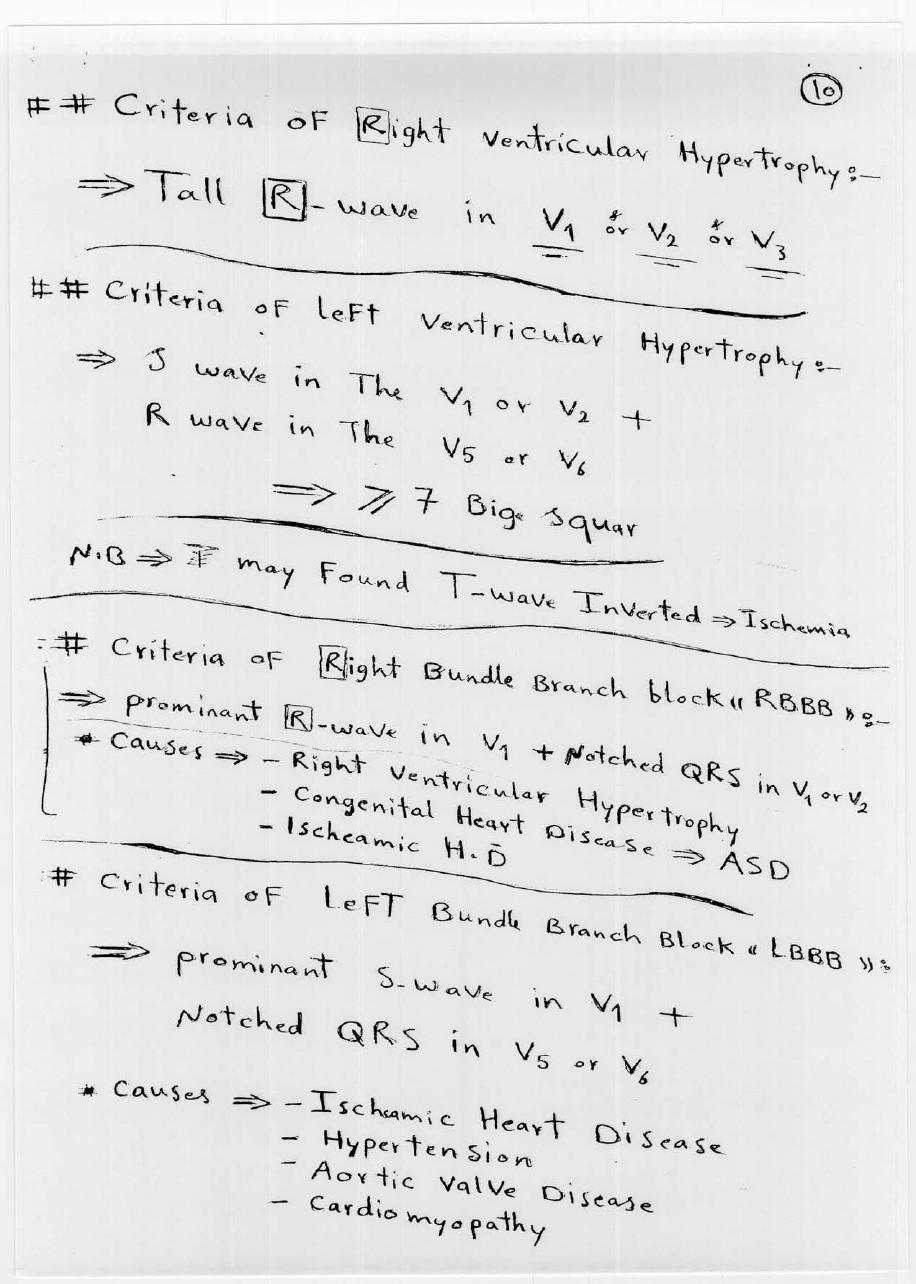 10
## Criteria OF Right ventricular Hypertrophy:-
⇒ Tall R-wave in V1 or V2 or V3
## Criteria OF leFt ventricular Hypertrophy:-
⇒ S wave in The V1 or V2 +
R wave in The V5 or V6
⇒ ⩾ 7 Big Squar
N.B ⇒ may Found T-wave Inverted ⇒ Ischemia
# Criteria OF Right Bundle Branch block «RBBB»:-
⇒ prominant R-wave in V1 + Notched QRS in V1 or V2
* Causes ⇒ - Right Ventricular Hypertrophy
- Congenital Heart Disease ⇒ ASD
- Ischeamic H.D
# Criteria OF LeFT Bundle Branch Block «LBBB»:
⇒ prominant S-wave in V1 +
Notched QRS in V5 or V6
* Causes ⇒ - Ischeamic Heart Disease
- Hypertension
- Aortic Valve Disease
- Cardiomyopathy